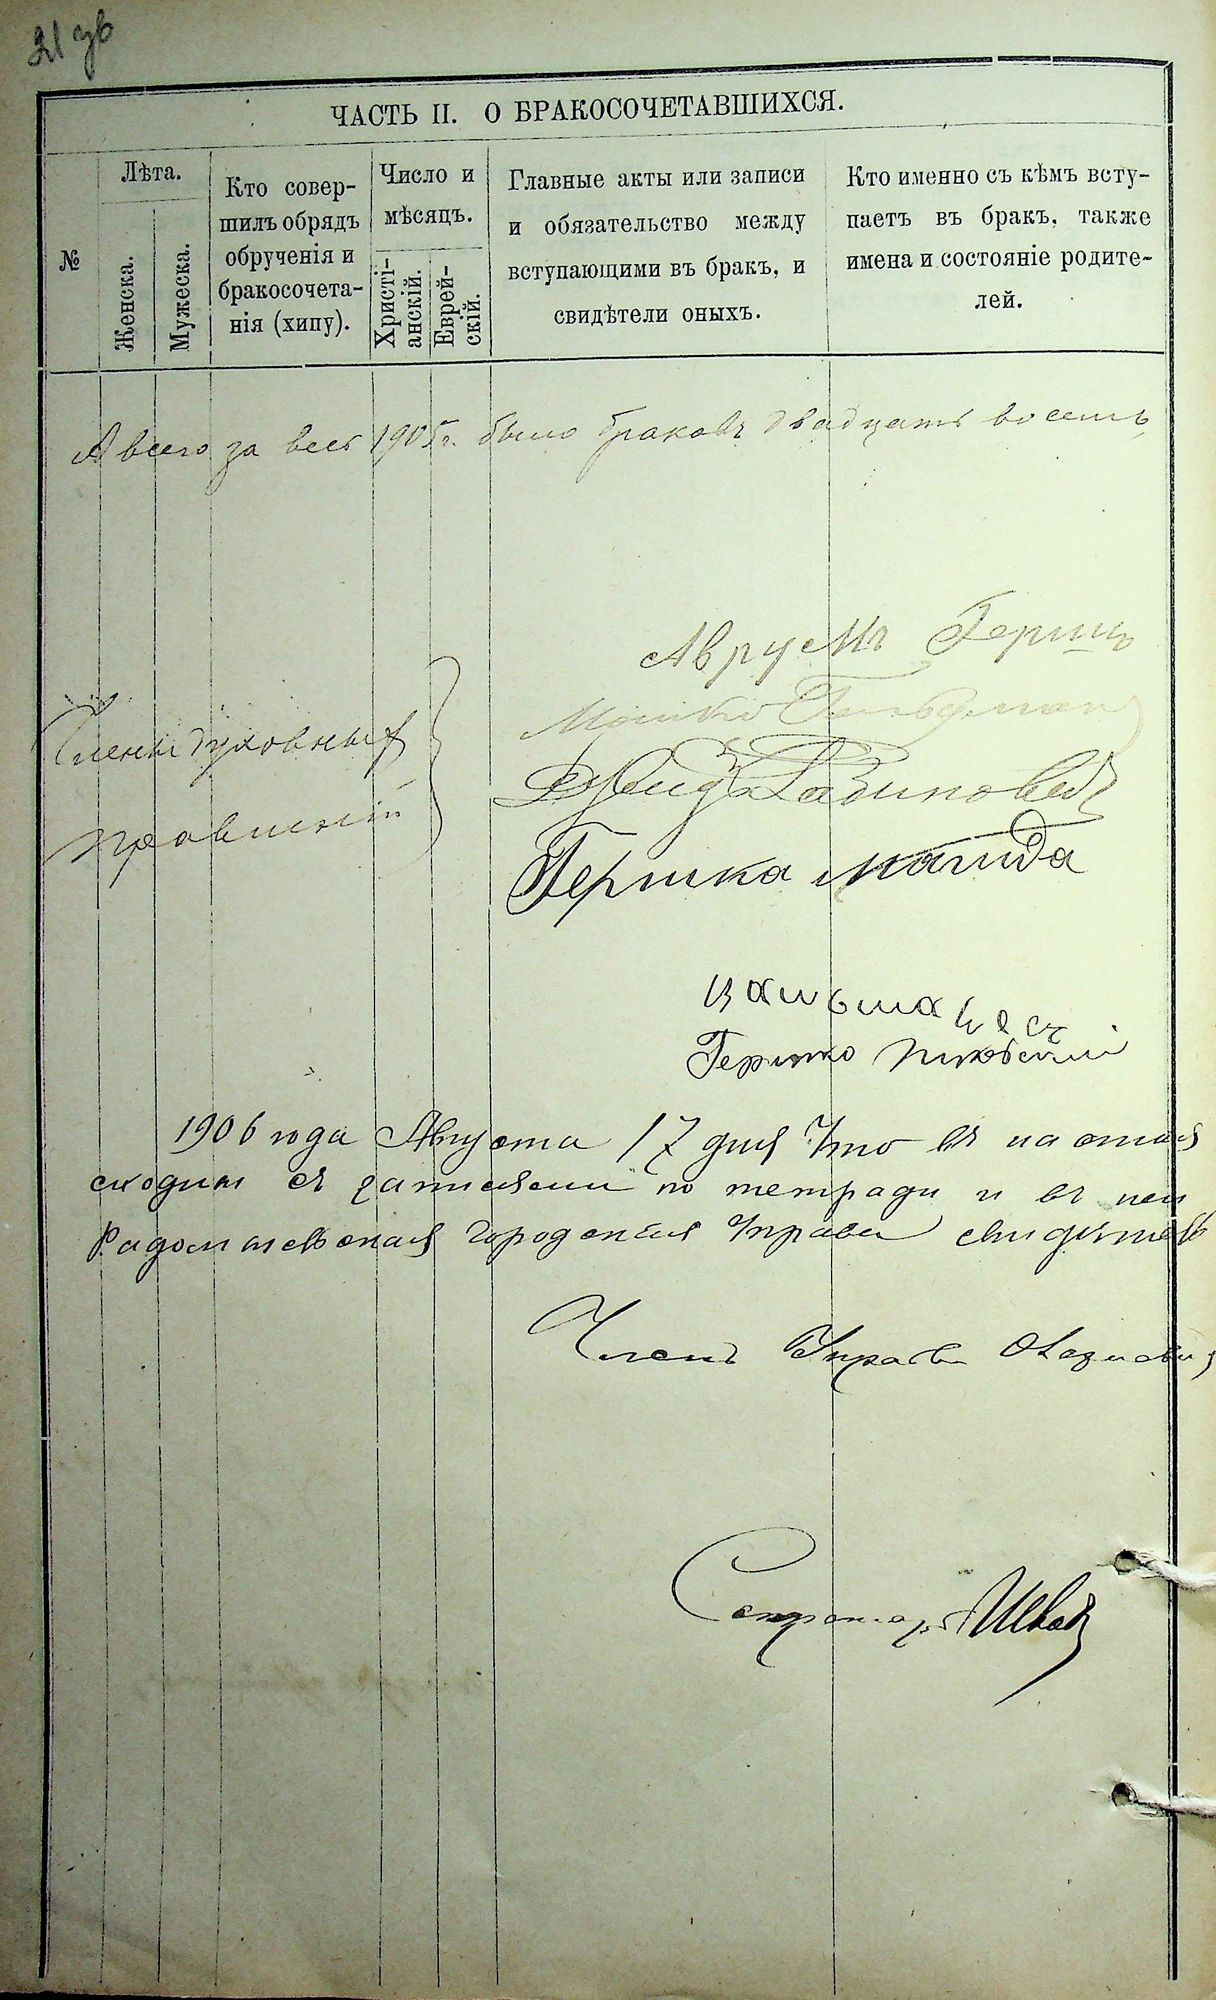 ЧАСТЬ II. О БРАКОСОЧЕТАВШИХСЯ.
№
Лѣта.
Женска.
Мужеска.
Кто совер-
шилъ обрядъ
обрученія и
бракосочета-
нія (хипу).
Число и
мѣсяцъ.
Христі-
анскій.
Еврей-
скій.
Главные акты или записи
и обязательство между
вступающими въ бракъ, и
свидѣтели оныхъ.
Кто именно съ кѣмъ всту-
паетъ въ бракъ, также
имена и состояніе родите-
лей.
А всего за весь 1905 г. было браковъ двадцать восемь
Члены духовныхъ
правленій
Аврумъ Гершъ
Мошко Гельдман
Дувидъ Рабиновичъ
Гершка Магида
Гершко
1906 года Августа 17 дня Что въ
сходны съ записями по тетради и въ
Радомысльская Городская Управа
Членъ Управы
Секретарь